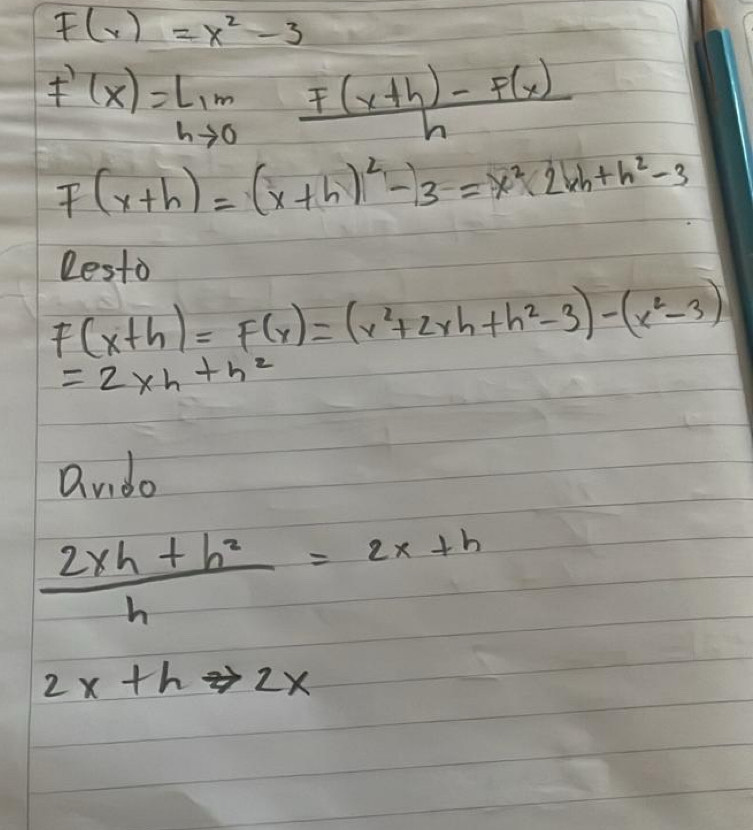 F(x) = x² - 3
F'(x) = Lim h→0 F(x+h) - F(x) / h
F(x+h) = (x+h)² - 3 = x² 2xh + h² - 3
Resto
F(x+h) = F(x) = (x² + 2xh + h² - 3) - (x² - 3)
= 2xh + h²
Divido
2xh + h² / h = 2x + h
2x + h ⇒ 2x